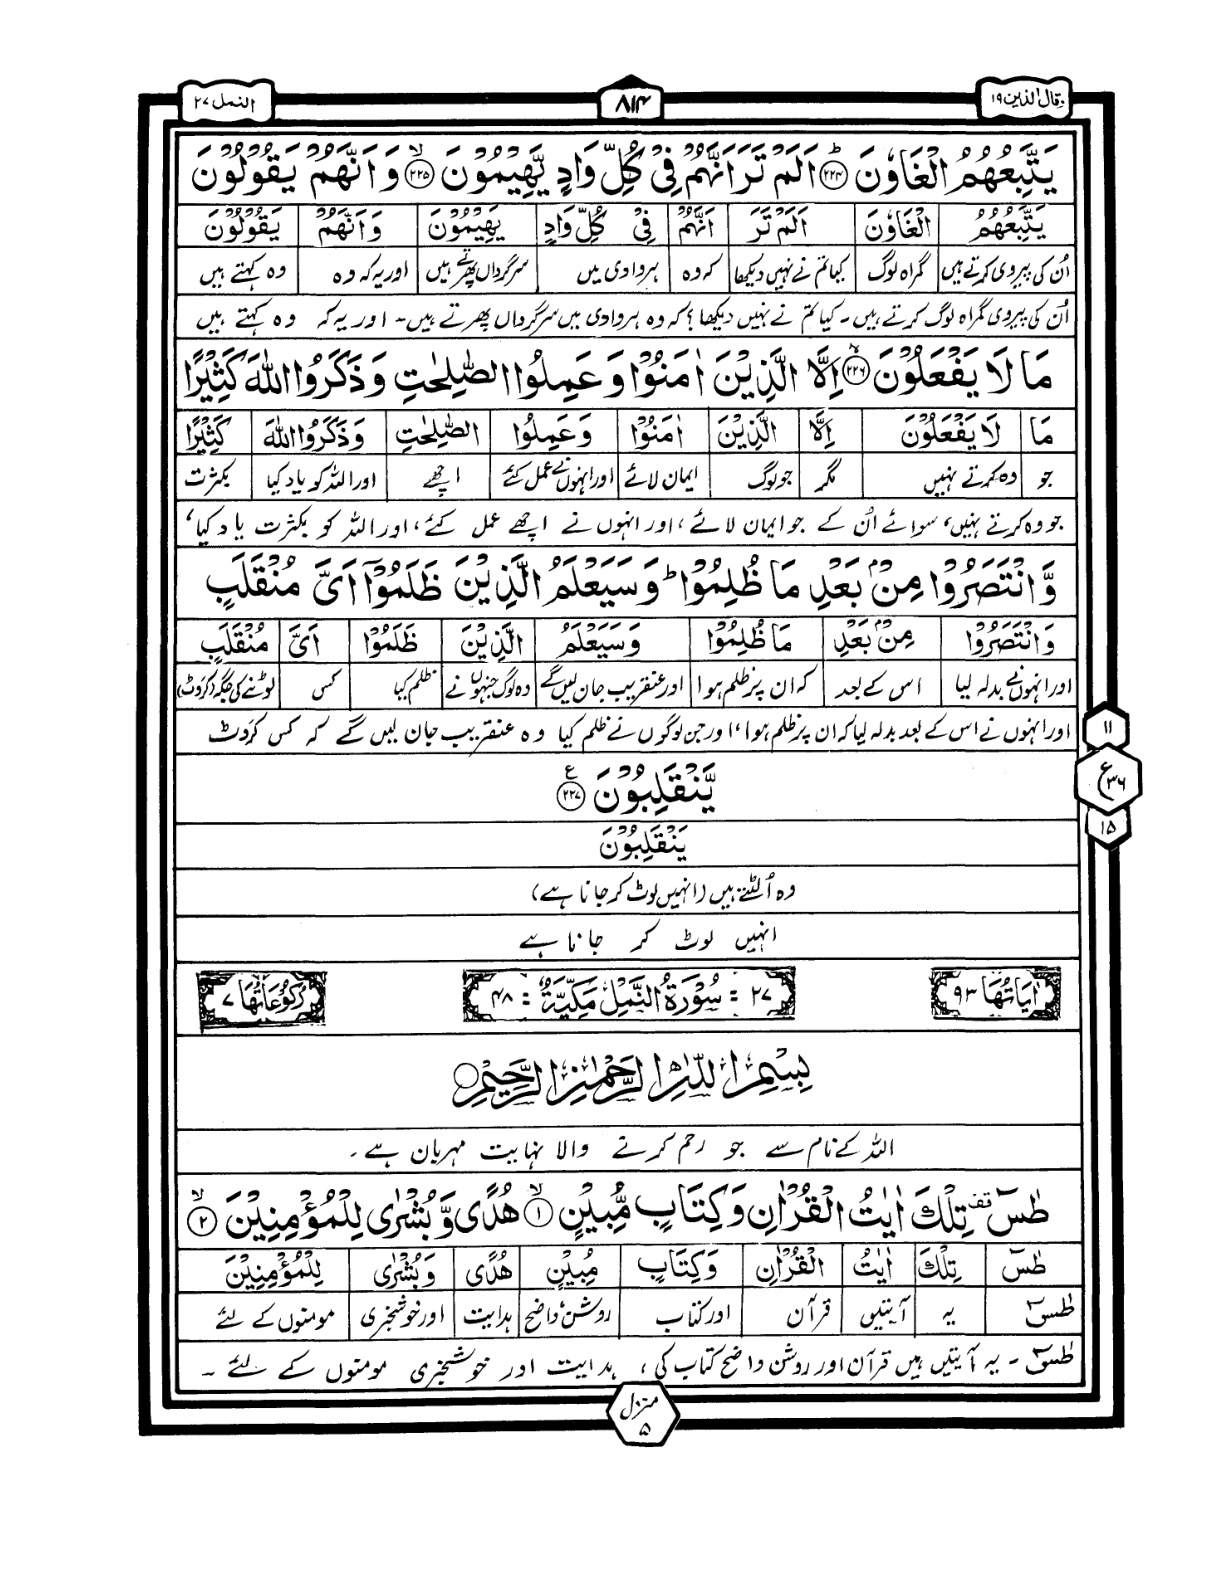 وقال الذین ۱۹
۸۱۴
النمل ۲۷
یَتَّبِعُهُمُ الْغَاوٗنَ ؕ ۲۲۴ اَلَمْ تَرَ اَنَّهُمْ فِیْ كُلِّ وَادٍ یَّهِیْمُوْنَ ۙ ۲۲۵ وَ اَنَّهُمْ یَقُوْلُوْنَ
یَتَّبِعُهُمُ الْغَاوٗنَ اَلَمْ تَرَ اَنَّهُمْ فِیْ كُلِّ وَادٍ یَهِیْمُوْنَ وَ اَنَّهُمْ یَقُوْلُوْنَ
اُن کی پیروی کرتے ہیں گمراہ لوگ کیا تم نے نہیں دیکھا کہ وہ ہر وادی میں سرگرداں پھرتے ہیں اور یہ کہ وہ وہ کہتے ہیں
اُن کی پیروی گمراہ لوگ کرتے ہیں۔ کیا تم نے نہیں دیکھا؟ کہ وہ ہر وادی میں سرگرداں پھرتے ہیں۔ اور یہ کہ وہ کہتے ہیں
مَا لَا یَفْعَلُوْنَ ۙ ۲۲۶ اِلَّا الَّذِیْنَ اٰمَنُوْا وَ عَمِلُوا الصّٰلِحٰتِ وَ ذَكَرُوا اللّٰهَ كَثِیْرًا
مَا لَا یَفْعَلُوْنَ اِلَّا الَّذِیْنَ اٰمَنُوْا وَ عَمِلُوا الصّٰلِحٰتِ وَ ذَكَرُوا اللّٰهَ كَثِیْرًا
جو وہ کرتے نہیں مگر جو لوگ ایمان لائے اور انہوں نے عمل کئے اچھے اور اللہ کو یاد کیا بکثرت
جو وہ کرتے نہیں، سوائے اُن کے جو ایمان لائے، اور انہوں نے اچھے عمل کئے، اور اللہ کو بکثرت یاد کیا،
وَّ انْتَصَرُوْا مِنْۢ بَعْدِ مَا ظُلِمُوْا ؕ وَ سَیَعْلَمُ الَّذِیْنَ ظَلَمُوْۤا اَیَّ مُنْقَلَبٍ
وَ انْتَصَرُوْا مِنْۢ بَعْدِ مَا ظُلِمُوْا وَ سَیَعْلَمُ الَّذِیْنَ ظَلَمُوْا اَیَّ مُنْقَلَبٍ
اور انہوں نے بدلہ لیا اس کے بعد کہ ان پر ظلم ہوا اور عنقریب جان لیں گے وہ لوگ جنہوں نے ظلم کیا کس لوٹنے کی جگہ (کروٹ)
اور انہوں نے اس کے بعد بدلہ لیا کہ ان پر ظلم ہوا، اور جن لوگوں نے ظلم کیا وہ عنقریب جان لیں گے کہ کس کروٹ
۱۱
ع ۳۶
۱۵
یَّنْقَلِبُوْنَ ع ۲۲۷
یَنْقَلِبُوْنَ
وہ اُلٹتے ہیں (انہیں لوٹ کر جانا ہے)
انہیں لوٹ کر جانا ہے
اٰیَاتُهَا ۹۳
۲۷ = سُوْرَةُ النَّمْلِ مَكِّیَّةٌ = ۴۸
رُكُوْعَاتُهَا ۷
بِسْمِ اللّٰهِ الرَّحْمٰنِ الرَّحِیْمِ
اللہ کے نام سے جو رحم کرنے والا نہایت مہربان ہے۔
طٰسٓ قف تِلْكَ اٰیٰتُ الْقُرْاٰنِ وَ كِتَابٍ مُّبِیْنٍ ۙ ۱ هُدًی وَّ بُشْرٰی لِلْمُؤْمِنِیْنَ ۙ ۲
طٰسٓ تِلْكَ اٰیٰتُ الْقُرْاٰنِ وَ كِتَابٍ مُبِیْنٍ هُدًی وَ بُشْرٰی لِلْمُؤْمِنِیْنَ
طٰسٓ یہ آیتیں قرآن اور کتاب روشن واضح ہدایت اور خوشخبری مومنوں کے لئے
طٰسٓ۔ یہ آیتیں ہیں قرآن اور روشن واضح کتاب کی، ہدایت اور خوشخبری مومنوں کے لئے۔
منزل
۵